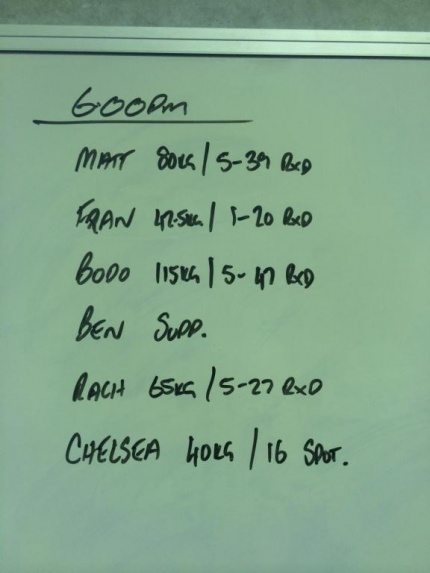 6:00pm
MATT 80KG / 5-39 RXD
FRAN 42.5KG / 1-20 RXD
BODO 115KG / 5-47 RXD
BEN SUPP.
RACH 65KG / 5-27 RXD
CHELSEA 40KG / 16 SPOT.